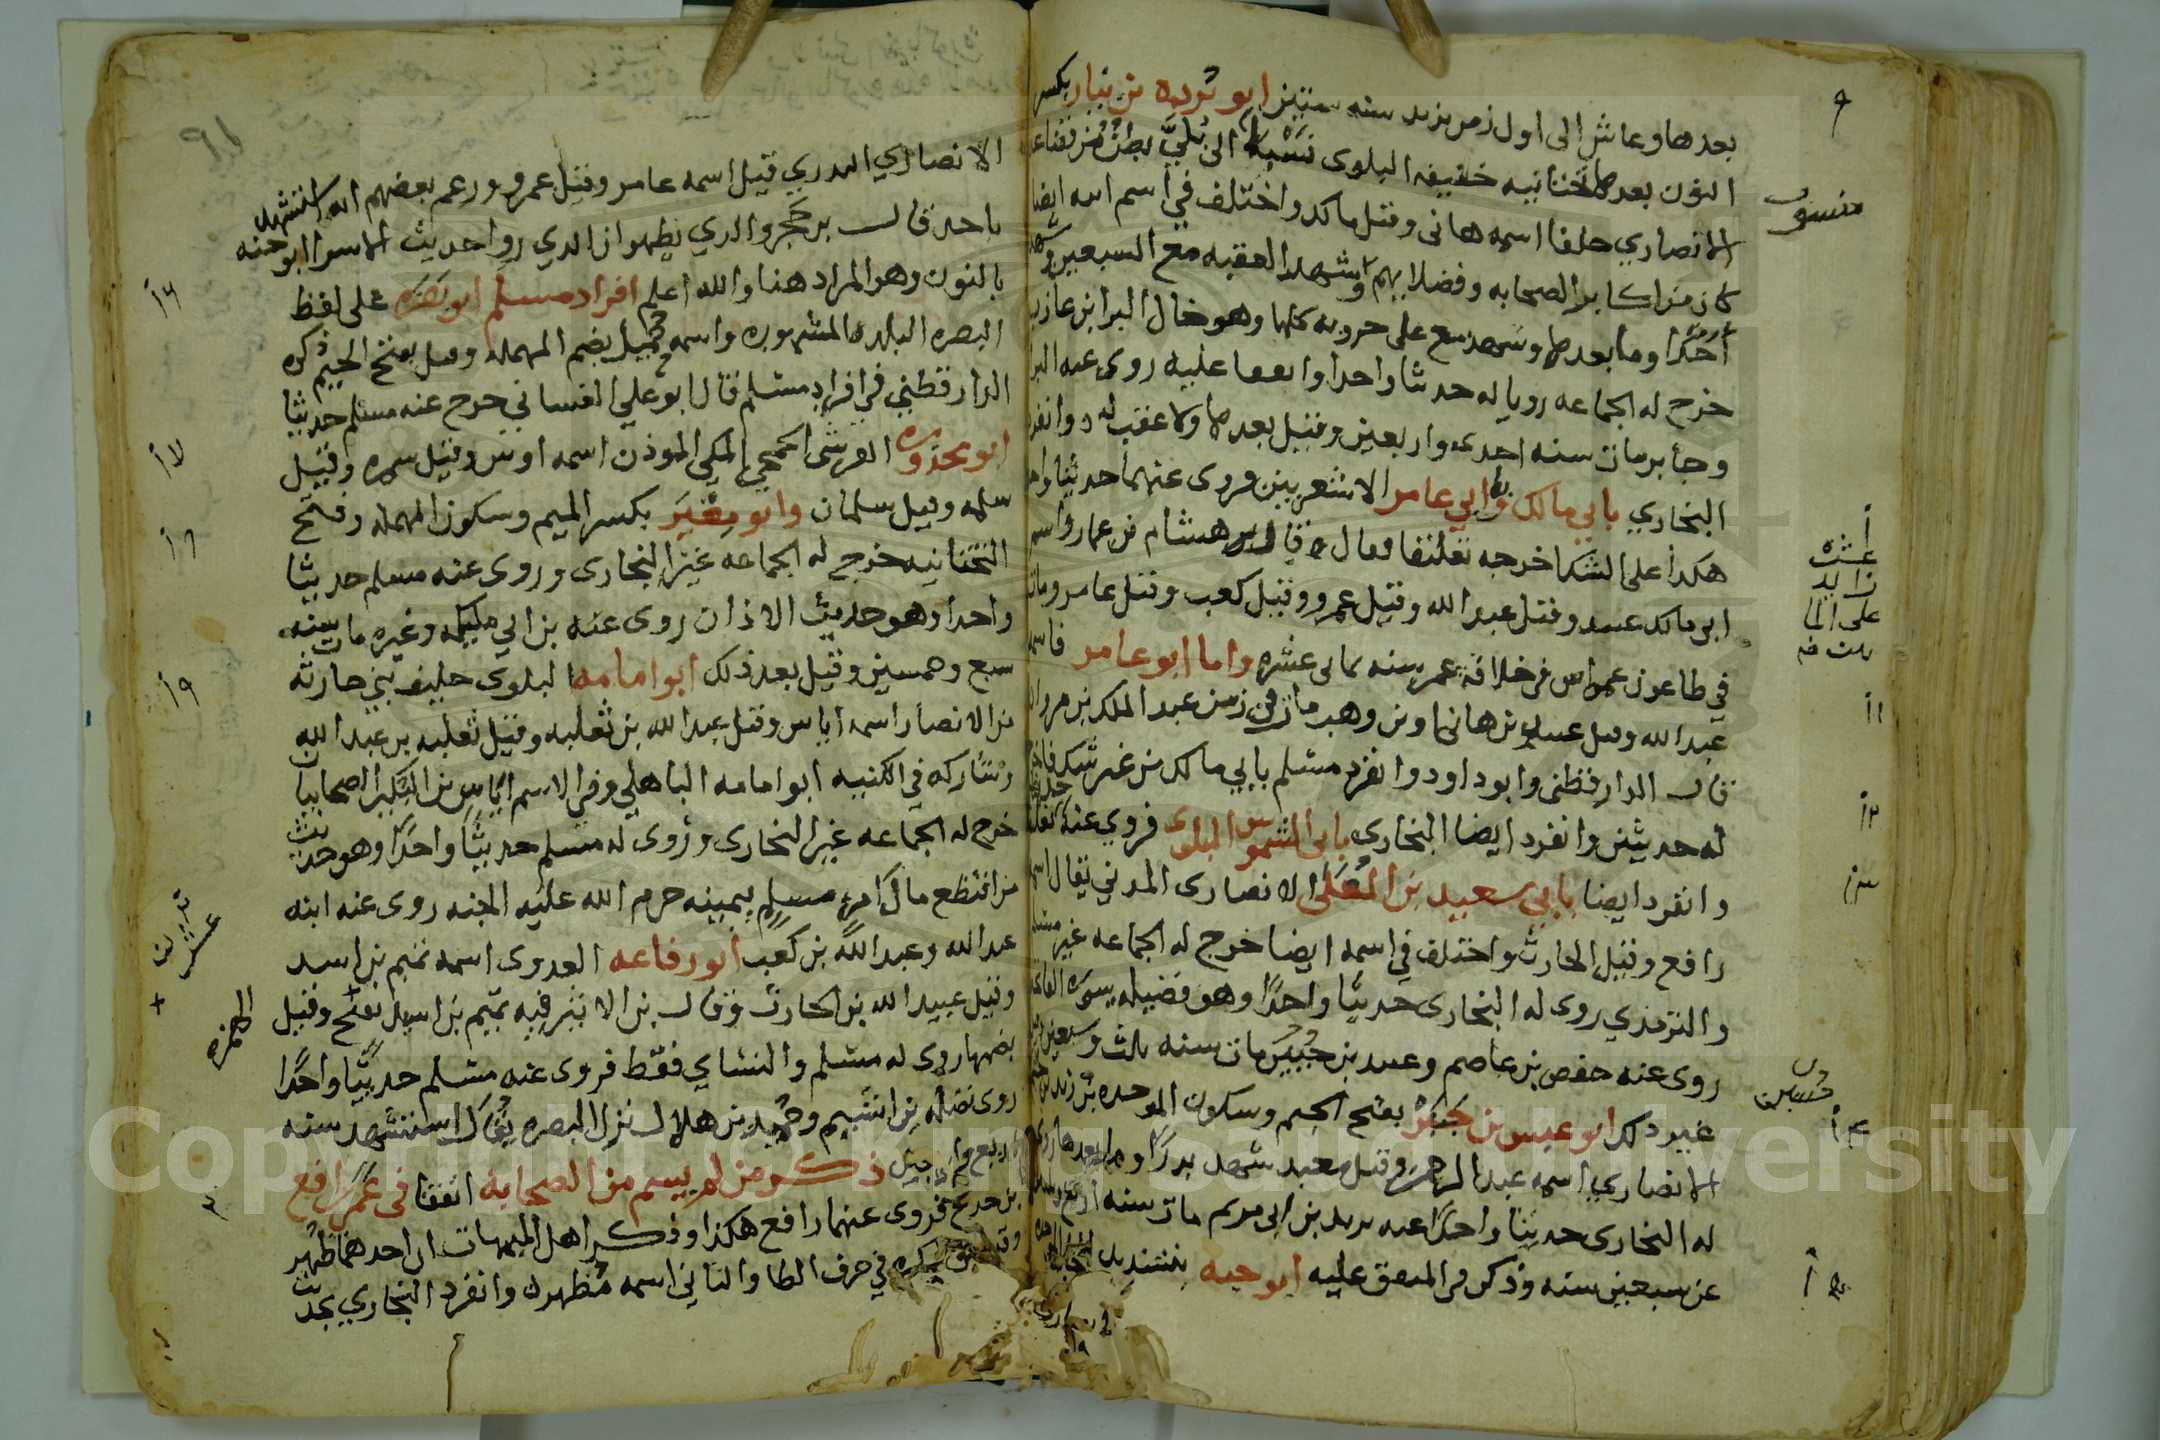 بعدها وعاش الى اول زمن يزيد سنه ستين ابو بردة بن نيار بكسر
النون بعدها تحتانيه خفيفه البلوى نسبة الى بلي بطن من قضاعه
الانصاري حلفا اسمه هانى وقيل مالك واختلف في اسم ابيه ايضا
كان من اكابر الصحابه وفضلايهم وشهد العقبه مع السبعين وشهد
أحدا وما بعدها وشهد مع على حروبه كلها وهو خال البرا بن عازب
خرج له الجماعه رويا له حديثا واحدا واتفقا عليه روى عنه البرا
وجابر مات سنه احدى واربعين وقيل بعدها ولا عقب له وانفرد
البخاري بابي مالك او ابي عامر الاشعريين فروى عنهما حديثا واحدا
هكذا على الشك اخرجه تعليقا فقال وقال هشام بن عمار واسم
ابى مالك عبيد وقيل عبد الله وقيل عمرو وقيل كعب وقيل عامر ومات
في طاعون عمواس في خلافة عمر سنه ثمانى عشره واما ابو عامر فاسمه
عبد الله وقيل عبيد بن هانئ او بن وهب مات في زمن عبد الملك بن مروان
قال الدارقطنى وابو داود وانفرد مسلم بابي مالك من غير شك فاخرج
له حديثين وانفرد ايضا البخارى بابى الشموس البلوى فروي عنه تعليقا
وانفرد ايضا بابي سعيد بن المعلى الانصارى المدني يقال اسمه
رافع وقيل الحارث واختلف في اسمه ايضا خرج له الجماعه غير مسلم
والترمذي روى له البخارى حديثا واحدا وهو فضيله سورة الفاتحة
روى عنه حفص بن عاصم وعبيد بن حنين مات سنه ثلث وسبعين وقيل
غير ذلك ابو عبس بن جبر بفتح الجيم وسكون الموحده بن زيد بن جشم
الانصاري اسمه عبد الرحمن وقيل معبد شهد بدرا وما بعدها روى
له البخارى حديثا واحدا عنه يزيد بن ابى مريم مات سنه اربع وثلاثين
عن سبعين سنه وذكر في المتفق عليه ابو حبه بتشديد
الانصاري البدري قيل اسمه عامر وقيل عمرو وزعم بعضهم انه استشهد
باحد قال بن حجر والذي يظهر ان الذي روا حديث الاسرا ابو حنه
بالنون وهو المراد هنا والله اعلم افراد مسلم ابو بصره على لفظ
البصره البلده المشهوره واسمه حميل بضم المهمله وقيل بفتح الجيم ذكره
الدارقطني في افراد مسلم قال ابو علي الغساني خرج عنه مسلم حديثا
ابو محذوره القرشى الجمحي المكي الموذن اسمه اوس وقيل سمره وقيل
سلمه وقيل سلمان وابو معير بكسر الميم وسكون المهمله وفتح
التحتانيه خرج له الجماعه غير البخارى وروى عنه مسلم حديثا
واحدا وهو حديث الاذان روى عنه بن ابي مليكه وغيره مات سنه
سبع وخمسين وقيل بعد ذلك ابو امامه البلوى حليف بني حارثه
من الانصار اسمه اياس وقيل عبد الله بن ثعلبه وقيل ثعلبه بن عبد الله
وشاركه في الكنيه ابو امامه الباهلي وفي الاسم اياس بن البكير الصحابيان
خرج له الجماعه غير البخارى وروى له مسلم حديثا واحدا وهو حديث
من اقتطع مال امرء مسلم بيمينه حرم الله عليه الجنه روى عنه ابنه
عبد الله وعبد الله بن كعب ابو رفاعه العدوى اسمه تميم بن اسد
وقيل عبد الله بن الحارث وقال بن الاثير فيه تميم بن اسيد بفتح وقيل
بضمها روى له مسلم والنساي فقط فروى عنه مسلم حديثا واحدا
روى عنه بن اشيم وحميد بن هلال نزل البصره يقال استشهد سنه
اربع واربعين ذكر من لم يسم من الصحابة اتفقا في عمي رافع
بن خديج فروى عنهما رافع هكذا وذكر اهل المبهمات ان احدهما ظهير
وقد سبق ذكره في حرف الظا والثاني اسمه مظهر وانفرد البخاري بحديث
منسوب
عشره
زايد
على
حنين
عشر
الهمزه
Copyright © King Saud University